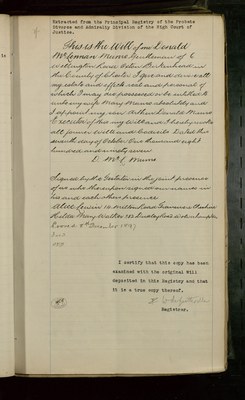 Extracted from the Principal Registry of the Probate
Divorce and Admiralty Division of the High Court of
Justice.
This is the Will of me Donald
McLennan Munro Gentleman of 6
Wellington Road Oxton Birkenhead in
the County of Chester I give and devise all
my estate and effects real and personal of
which I may die possessed or be entitled
unto my wife Mary Munro absolutely and
I appoint my son Arthur Munro
Executor of this my Will and I hereby revoke
all former wills and codicils Dated this
seventh day of October One thousand eight
hundred and ninety seven
D. McL Munro
Signed by the Testator in the joint presence
of us who thereupon signed our names in
his and each others presence
Alice Lewin 14 Road Tranmere
Hilda Mary Walker 152
Proved 8th December 1919
I certify that this copy has been
examined with the original Will
deposited in this Registry and that
it is a true copy thereof.
Registrar.